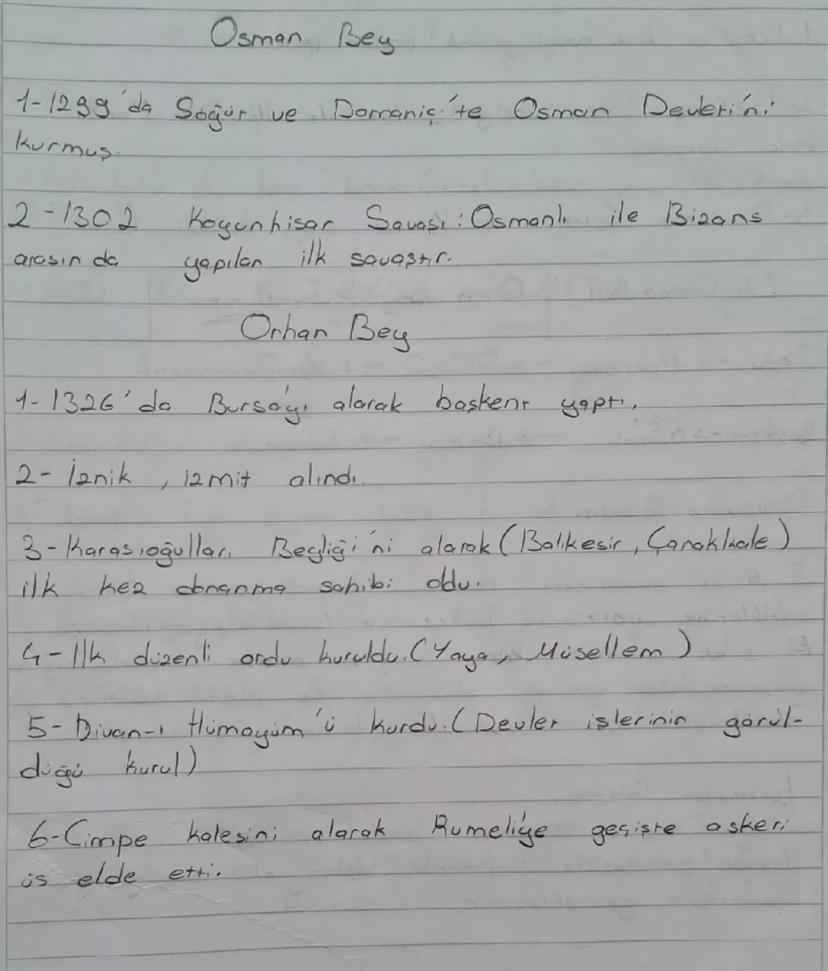 Osman Bey
1-1299'da Söğüt ve Domaniç'te Osman Devleti'ni
kurmuş.
2-1302 Koyunhisar Savaşı: Osmanlı ile Bizans
arasında yapılan ilk savaştır.
Orhan Bey
1-1326'da Bursa'yı alarak başkent yaptı.
2- İznik, izmit alındı.
3-Karasıoğulları Beyliği'ni alarak (Balıkesir, Çanakkale)
ilk kez donanma sahibi oldu.
4-Ilk düzenli ordu kuruldu. (Yaya, Müsellem)
5- Divan-ı Hümayüm'ü kurdu. (Devlet işlerinin görül-
düğü kurul)
6-Çimpe kalesini alarak Rumeli'ye geçişte askeri
üs elde etti.